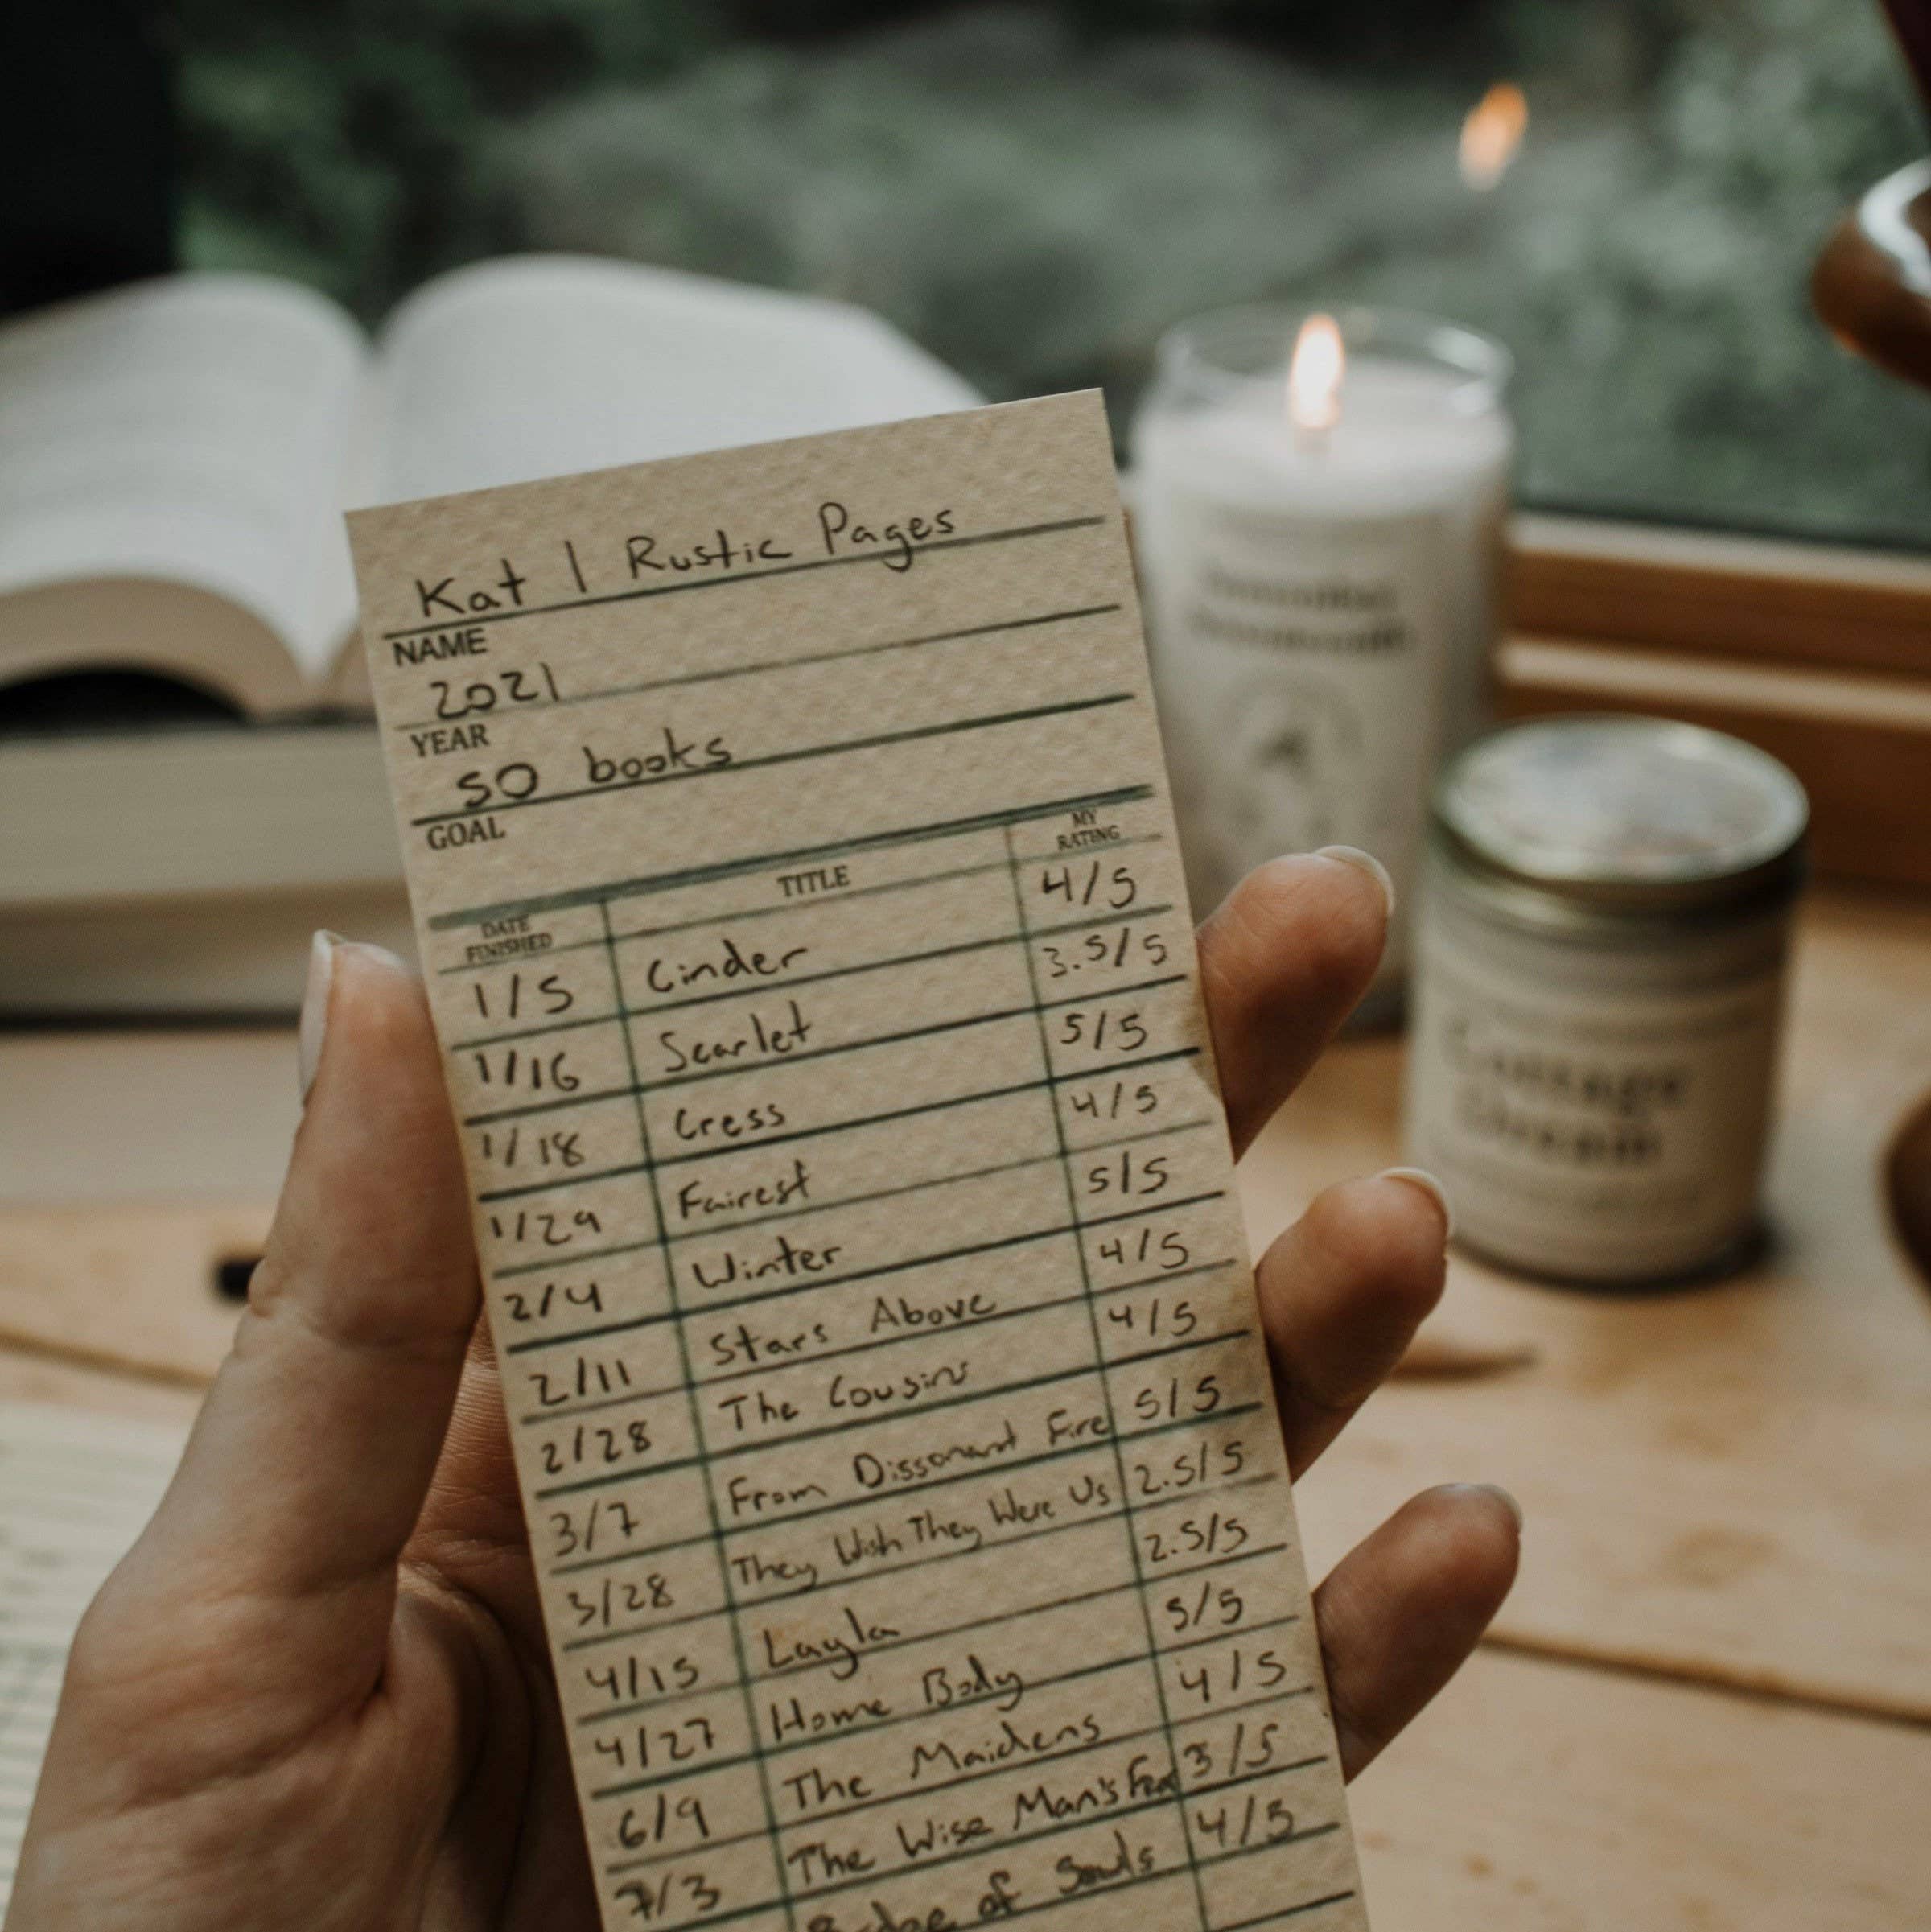 Kat | Rustic Pages
NAME
2021
YEAR
50 books
GOAL
DATE FINISHED TITLE MY RATING
1/5 Cinder 4/5
1/16 Scarlet 3.5/5
1/18 Cress 5/5
1/29 Fairest 4/5
2/4 Winter 5/5
2/11 Stars Above 4/5
2/28 The Cousins 4/5
3/7 From Dissonant Fire 5/5
3/28 They Wish They Were Us 2.5/5
4/15 Layla 2.5/5
4/27 Home Body 5/5
6/9 The Maidens 4/5
7/3 The Wise Man's Fear 3/5
Bridge of Souls 4/5
Cottage
Dream